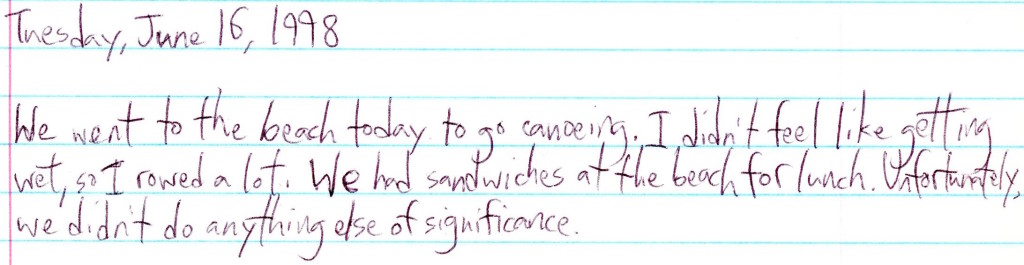 Tuesday, June 16, 1998
We went to the beach today to go canoeing. I didn't feel like getting
wet, so I rowed a lot. We had sandwiches at the beach for lunch. Unfortunately,
we didn't do anything else of significance.